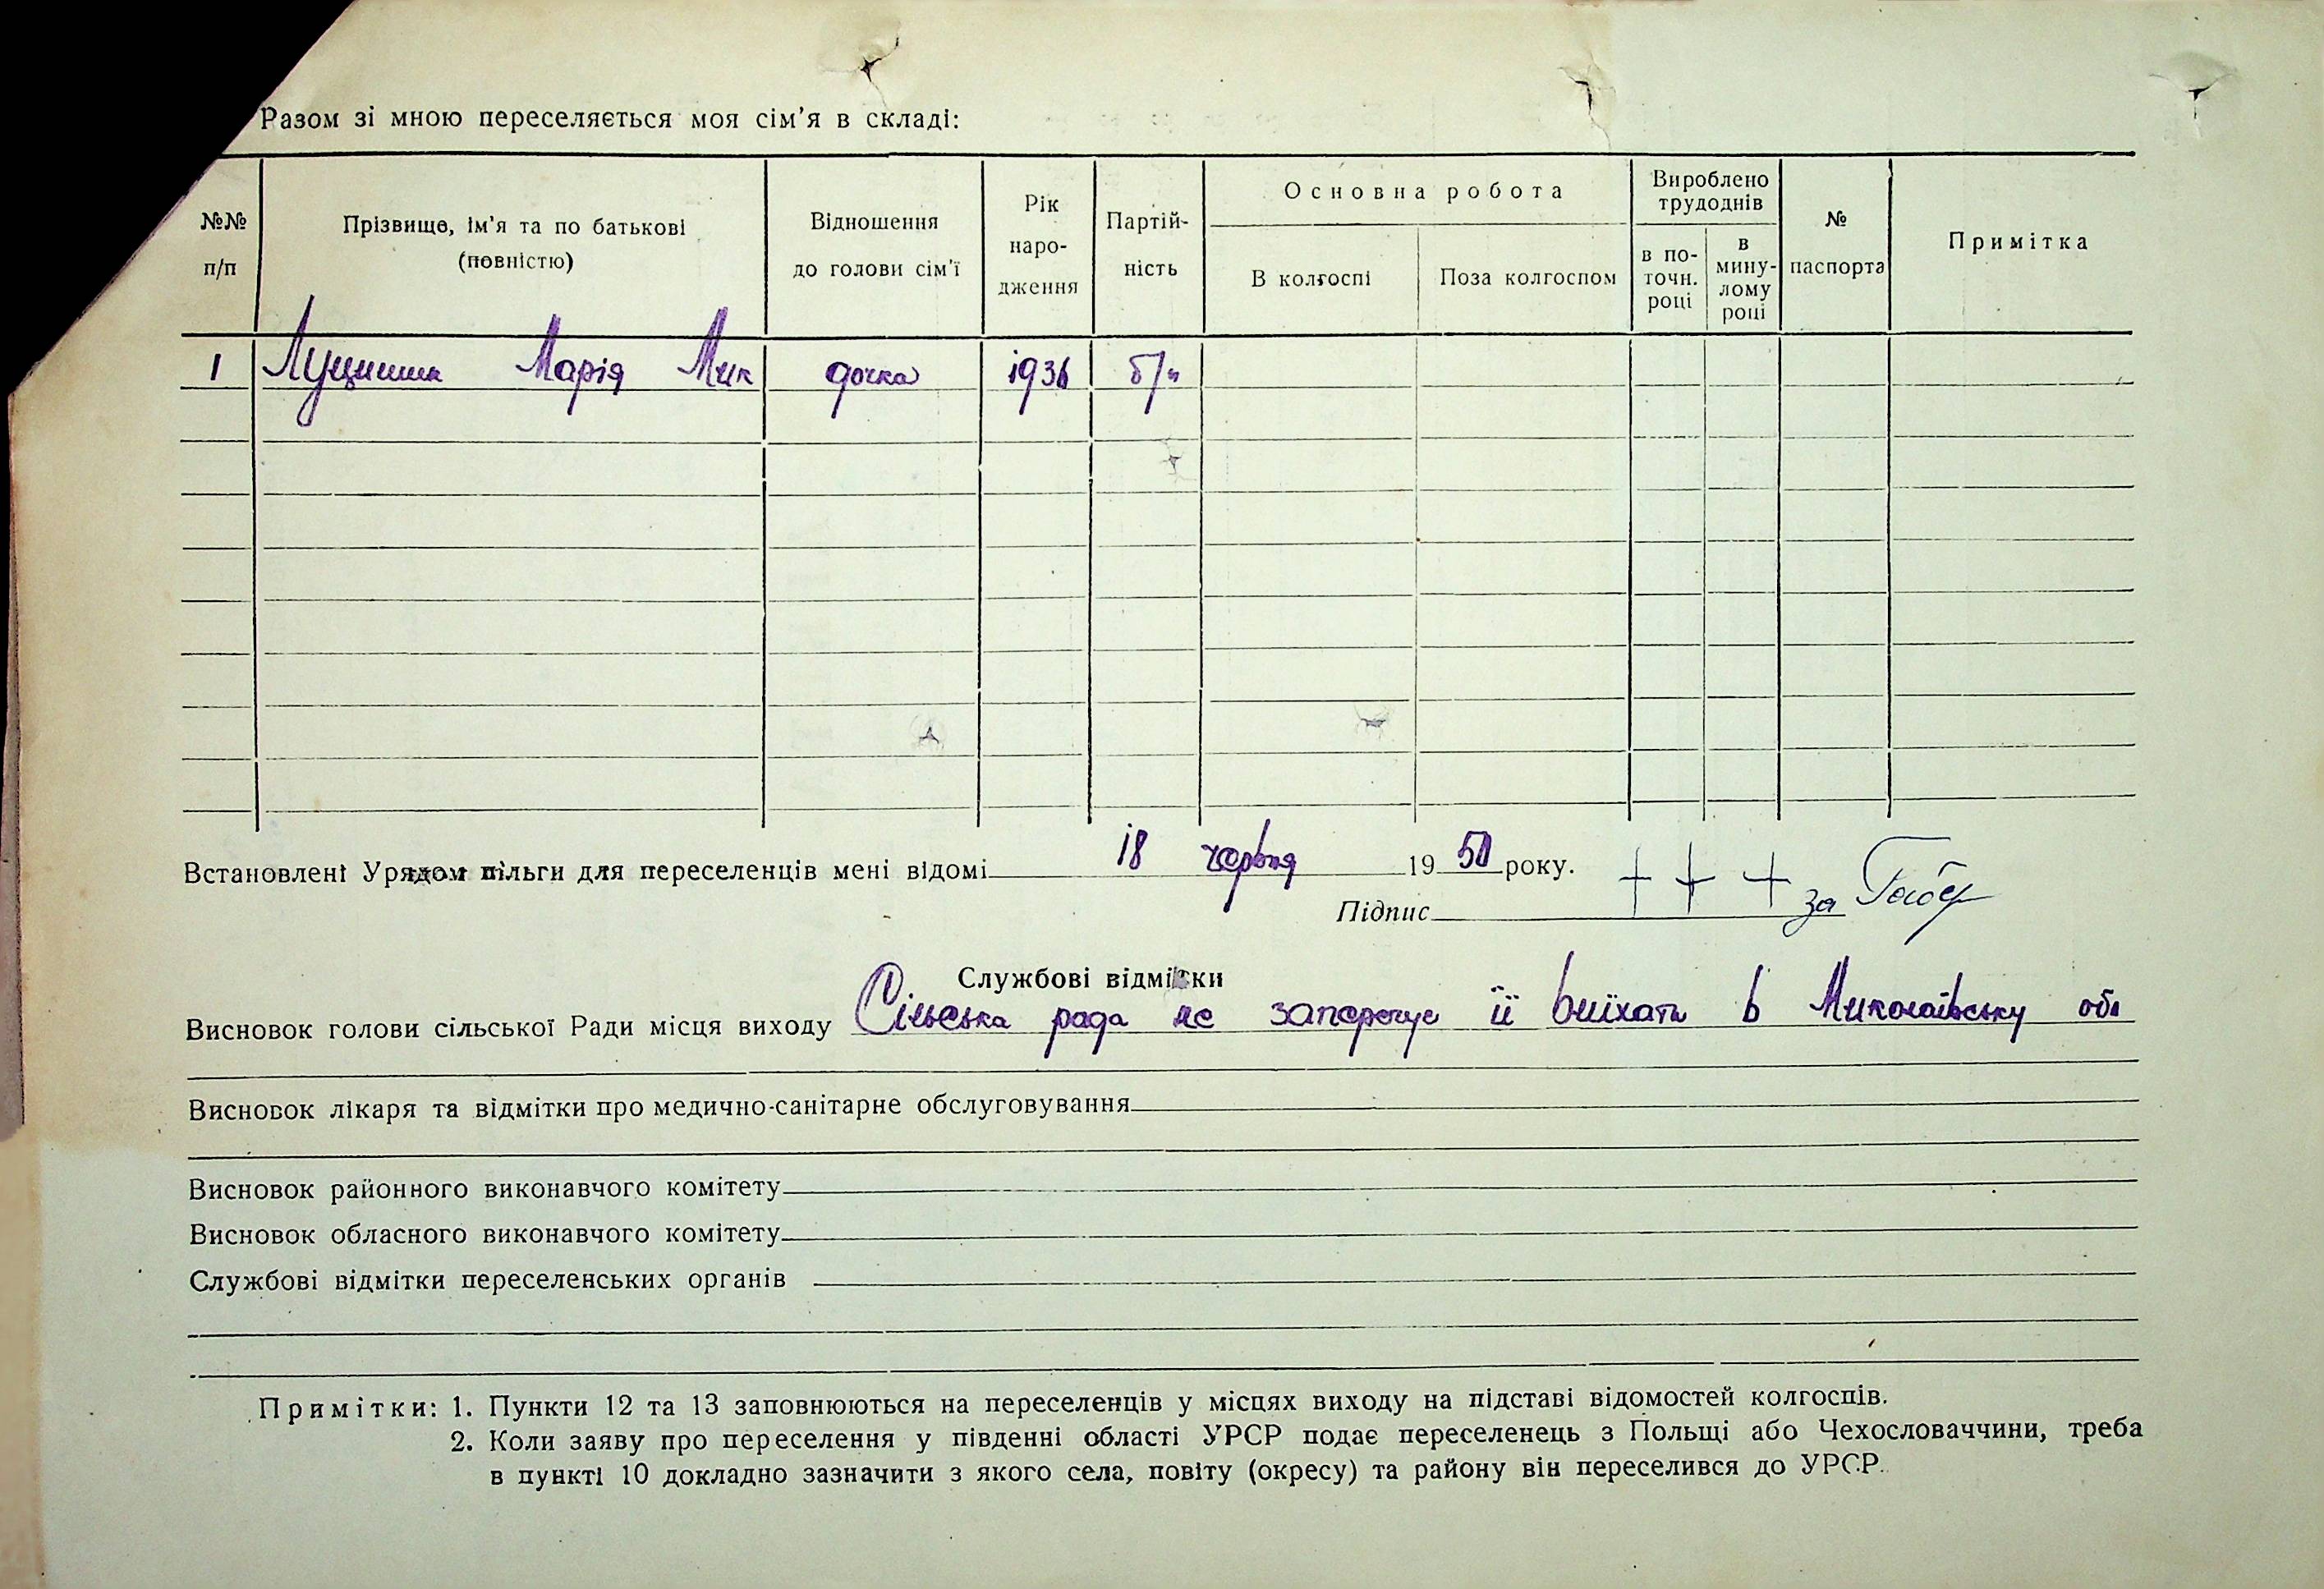 Разом зі мною переселяється моя сім'я в складі:
№№ п/п
Прізвище, ім'я та по батькові (повністю)
Відношення до голови сім'ї
Рік наро-дження
Партій-ність
Основна робота
В колгоспі
Поза колгоспом
Вироблено трудоднів
в по-точн. році
в мину-лому році
№ паспорта
Примітка
1 Марія Мик дочка 1936 б/п
Встановлені Урядом пільги для переселенців мені відомі 18 червня 1950 року.
Підпис + + + за
Службові відмітки
Висновок голови сільської Ради місця виходу Сільська рада не заперечує її виїхати в Миколаївську обл
Висновок лікаря та відмітки про медично-санітарне обслуговування
Висновок районного виконавчого комітету
Висновок обласного виконавчого комітету
Службові відмітки переселенських органів
Примітки: 1. Пункти 12 та 13 заповнюються на переселенців у місцях виходу на підставі відомостей колгоспів.
2. Коли заяву про переселення у південні області УРСР подає переселенець з Польщі або Чехословаччини, треба
в пункті 10 докладно зазначити з якого села, повіту (окресу) та району він переселився до УРСР.